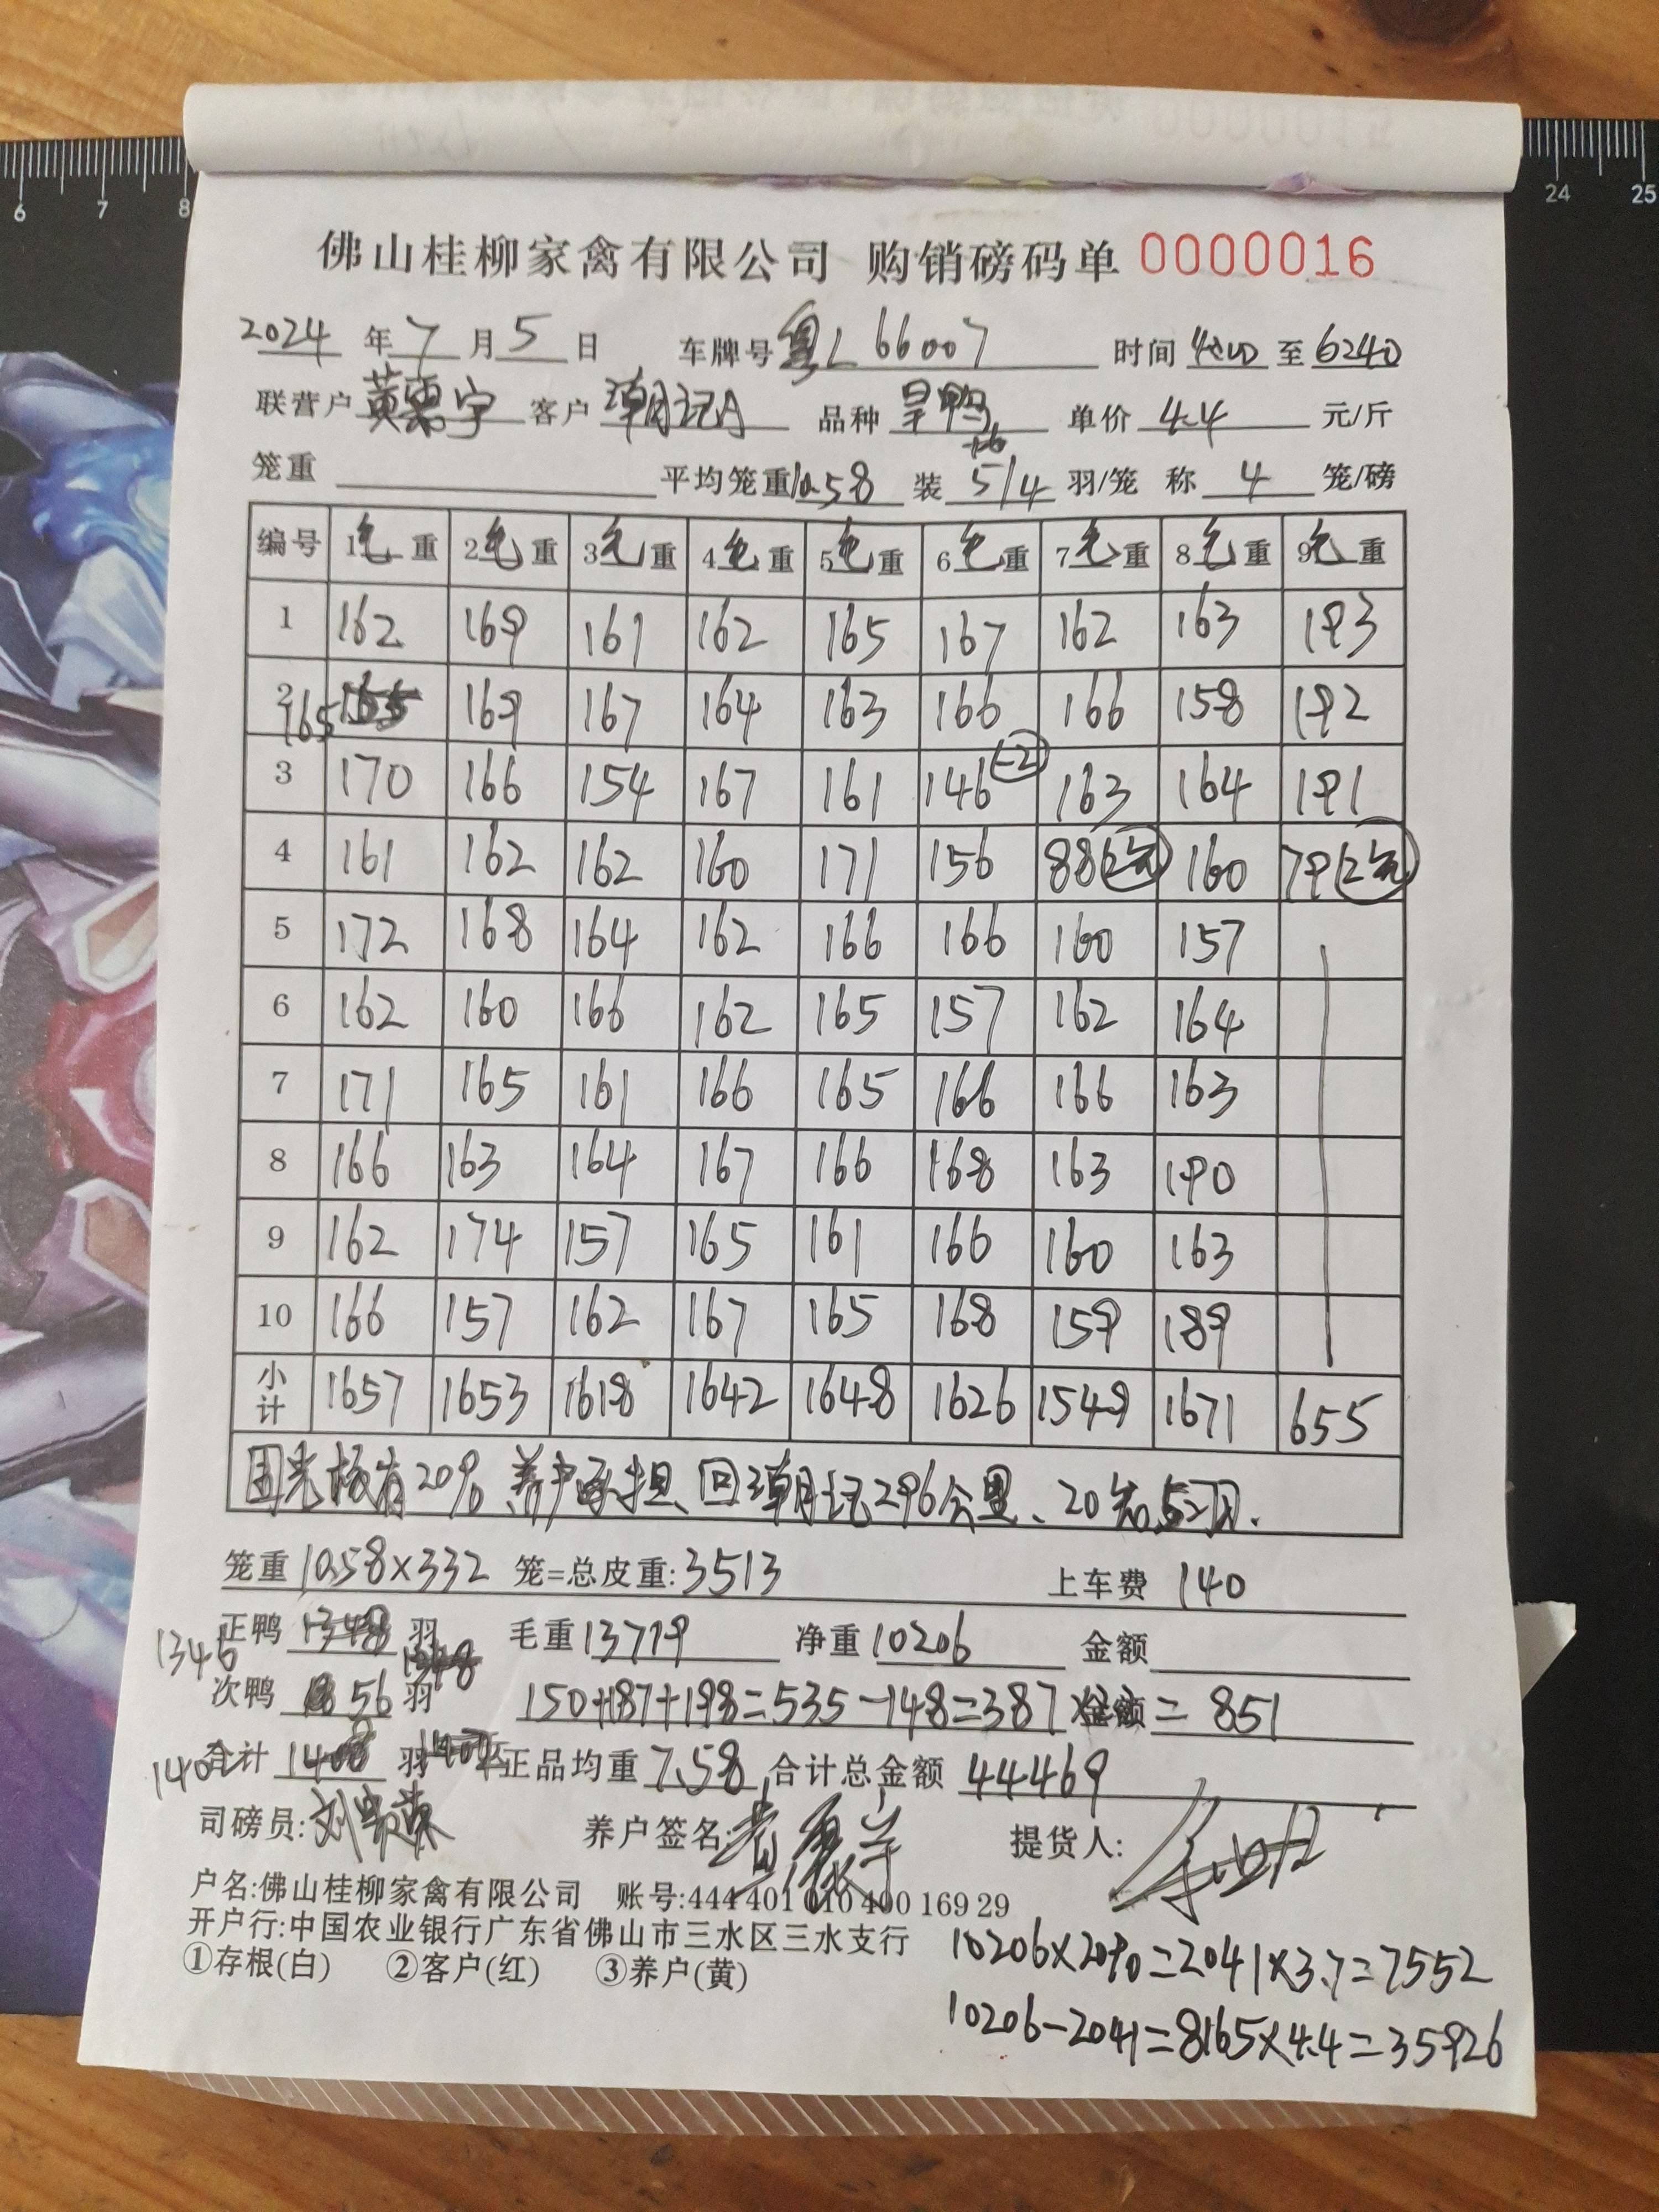 佛山桂柳家禽有限公司 购销磅码单 0000016
2024 年 7 月 5 日 车牌号 粤L 66007 时间 至 6:40
联营户 黄 宇 客户 潮记 品种 旱鸭 单价 4.4 元/斤
笼重 平均笼重 10.58 装 5/4 羽/笼 称 4 笼/磅
编号 1毛重 2毛重 3毛重 4毛重 5毛重 6毛重 7毛重 8毛重 9毛重
1 162 169 161 162 165 167 162 163 193
2 165 169 167 164 163 166 166 158 192
3 170 166 154 167 161 146 (-2) 163 164 191
4 161 162 162 160 171 156 88 (2笼) 160 79 (2笼)
5 172 168 164 162 166 166 160 157
6 162 160 166 162 165 157 162 164
7 171 165 161 166 165 166 166 163
8 166 163 164 167 166 168 163 190
9 162 174 157 165 161 166 160 163
10 166 157 162 167 165 168 159 189
小计 1657 1653 1618 1642 1648 1626 1549 1671 655
20% 养户承担、回潮记296公里、20
笼重 10.58×332 笼=总皮重: 3513 上车费 140
正鸭 1346 羽 毛重 13719 净重 10206 金额
次鸭 56 羽 150+187+198=535-148=387 金额 = 851
合计 1402 羽 正品均重 7.58 合计总金额 44469
司磅员: 刘 养户签名: 黄 宇 提货人:
户名:佛山桂柳家禽有限公司 账号:444 401 010 400 169 29
开户行:中国农业银行广东省佛山市三水区三水支行
①存根(白) ②客户(红) ③养户(黄)
10206×20%=2041×3.7=7552
10206-2041=8165×4.4=35926
6 7 8 24 25